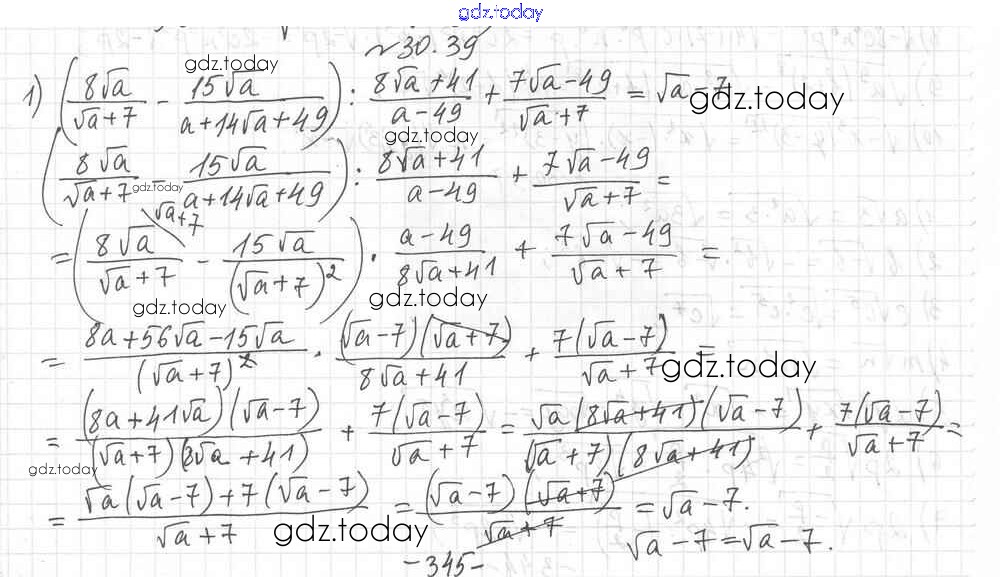 gdz.today
№30.39
gdz.today
1) (8√a/(√a+7) - 15√a/(a+14√a+49)) : (8√a+41)/(a-49) + (7√a-49)/(√a+7) = √a-7
gdz.today
gdz.today
(8√a/(√a+7) - 15√a/(a+14√a+49)) : (8√a+41)/(a-49) + (7√a-49)/(√a+7) =
gdz.today
√a+7
= (8√a/(√a+7) - 15√a/(√a+7)²) · (a-49)/(8√a+41) + (7√a-49)/(√a+7) =
gdz.today gdz.today
= (8a+56√a-15√a)/(√a+7)² · (√a-7)(√a+7)/(8√a+41) + 7(√a-7)/(√a+7) =
gdz.today
= (8a+41√a)(√a-7)/((√a+7)(8√a+41)) + 7(√a-7)/(√a+7) = √a(8√a+41)(√a-7)/((√a+7)(8√a+41)) + 7(√a-7)/(√a+7) =
gdz.today
= (√a(√a-7)+7(√a-7))/(√a+7) = (√a-7)(√a+7)/(√a+7) = √a-7.
gdz.today
√a-7=√a-7.
-345-